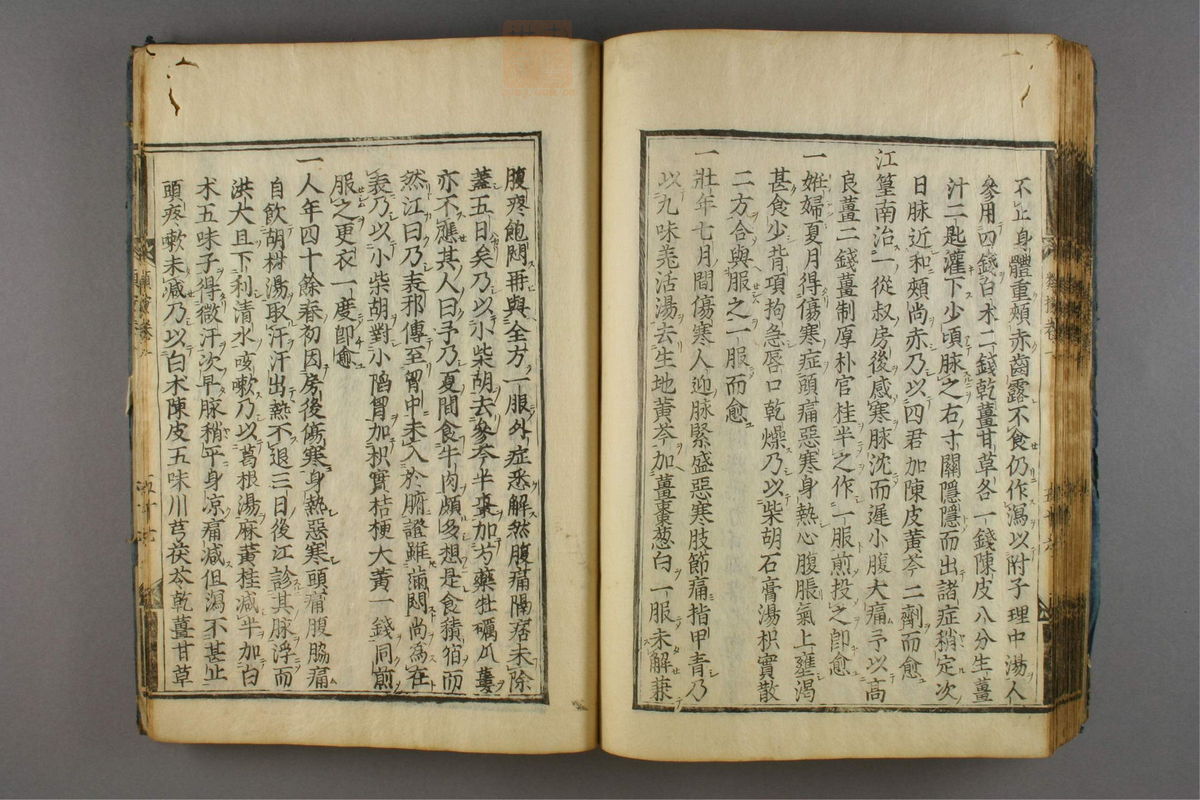 不止身體重頰赤齒露不食仍作瀉以附子理中湯人
參用四錢白术二錢乾薑甘草各一錢陳皮八分生薑
汁二匙灌下少頃脉之右寸關隱隱而出諸症稍定次
日脉近和頰尚赤乃以四君加陳皮黃芩二劑而愈
江篁南治一從叔房後感寒脉沈而遲小腹大痛予以高
良薑二錢薑制厚朴官桂半之作一服煎投之卽愈
一姙婦夏月得傷寒症頭痛惡寒身熱心腹脹氣上壅渴
甚食少背項拘急唇口乾燥乃以柴胡石膏湯枳實散
二方合與服之一服而愈
一壯年七月間傷寒人迎脉緊盛惡寒肢節痛指甲青乃
以九味羗活湯去生地黃芩加薑棗葱白一服未解兼
腹疼飽悶再與全方一服外症悉解然腹痛隔痞未除
蓋五日矣乃以小柴胡去參芩半棗加芍藥牡礪瓜蔞
亦不應其人曰予乃夏間食牛肉頗多想是食積宿而
然江曰乃表邪傳至胷中未入於腑證雖滿悶尚為在
表乃以小柴胡對小陷胷加枳實桔梗大黃一錢同煎
服之更衣一度卽愈
一人年四十餘春初因房後傷寒身熱惡寒頭痛腹脇痛
自飲胡椒湯取汗汗出熱不退三日後江診其脉浮而
洪大且下利清水咳嗽乃以葛根湯麻黃桂減半加白
术五味子得微汗次早脉稍平身凉痛減但瀉不甚止
頭疼嗽未減乃以白术陳皮五味川芎茯苓乾薑甘草